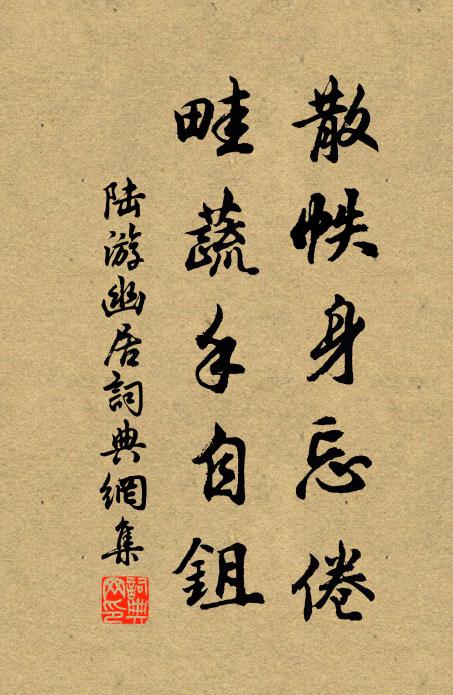 散帙身忘倦
畦蔬手自鉏
陆游幽居詞典網集
詞典网印